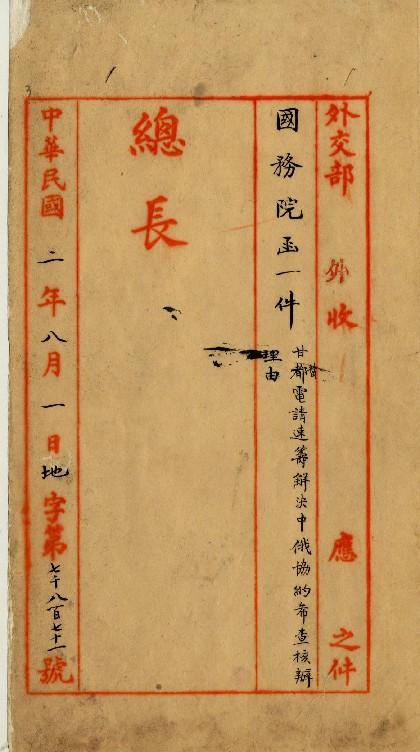 外交部 外收 應 之件
國務院函一件
甘督電請速籌解決中俄協約希查核辦
理由
總長
中華民國二年八月一日地字第七千八百七十一號